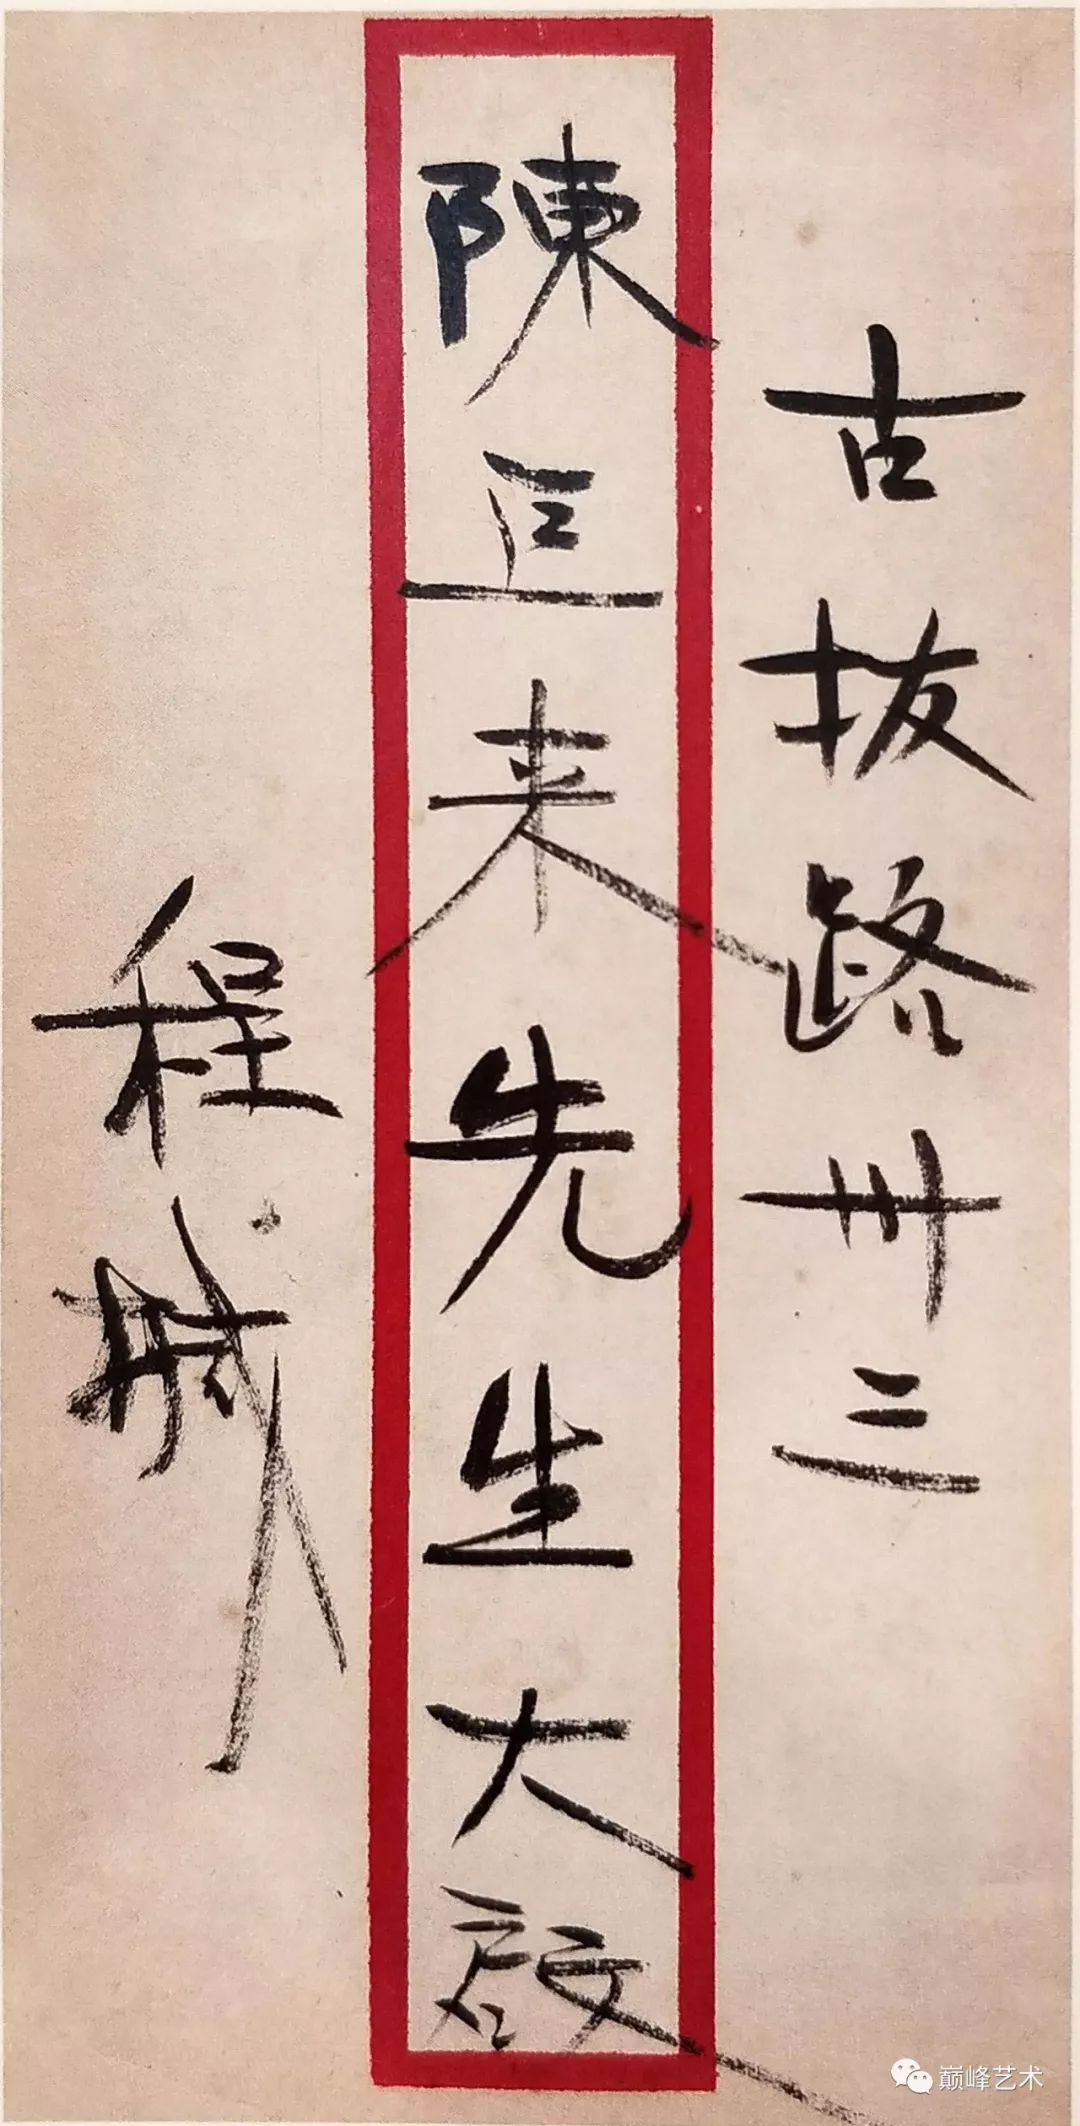 古拔路卅三
陳巨来先生大啟
程緘
巅峰艺术